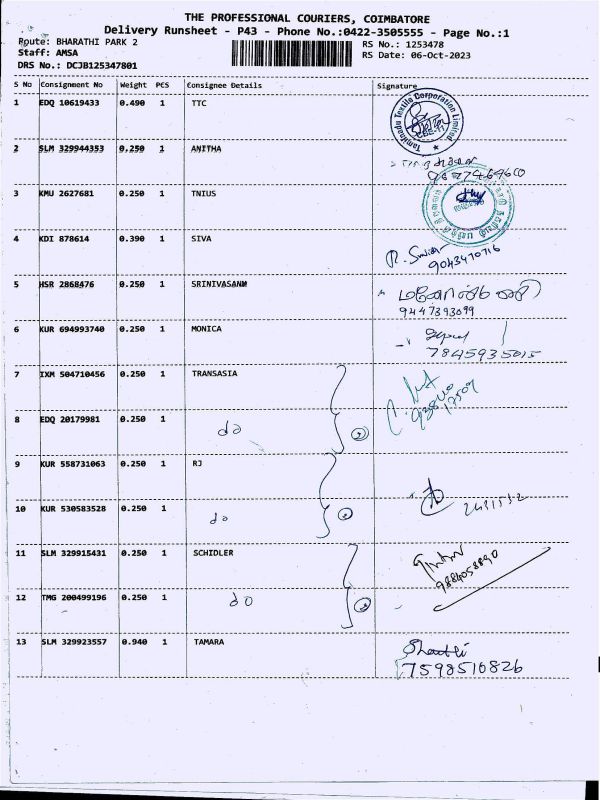 THE PROFESSIONAL COURIERS, COIMBATORE
Delivery Runsheet - P43 - Phone No.:0422-3505555 - Page No.:1
Route: BHARATHI PARK 2
RS No.: 1253478
Staff: AMSA
RS Date: 06-Oct-2023
DRS No.: DCJB125347801
S No Consignment No Weight PCS Consignee Details Signature
1 EDQ 10619433 0.490 1 TTC
Tamilnadu Textile Corporation Limited
2 SLM 329944353 0.250 1 ANITHA
3 KMU 2627681 0.250 1 TNIUS
4 KDI 878614 0.390 1 SIVA
9043470716
5 HSR 2868476 0.250 1 SRINIVASANM
9447393099
6 KUR 694993740 0.250 1 MONICA
7845935015
7 IXM 504710456 0.250 1 TRANSASIA
8 EDQ 20179981 0.250 1 do 2
9 KUR 558731063 0.250 1 RJ
10 KUR 530583528 0.250 1 do 2
11 SLM 329915431 0.250 1 SCHIDLER
9884058890
12 TMG 200499196 0.250 1 do 2
13 SLM 329923557 0.940 1 TAMARA
7598510826